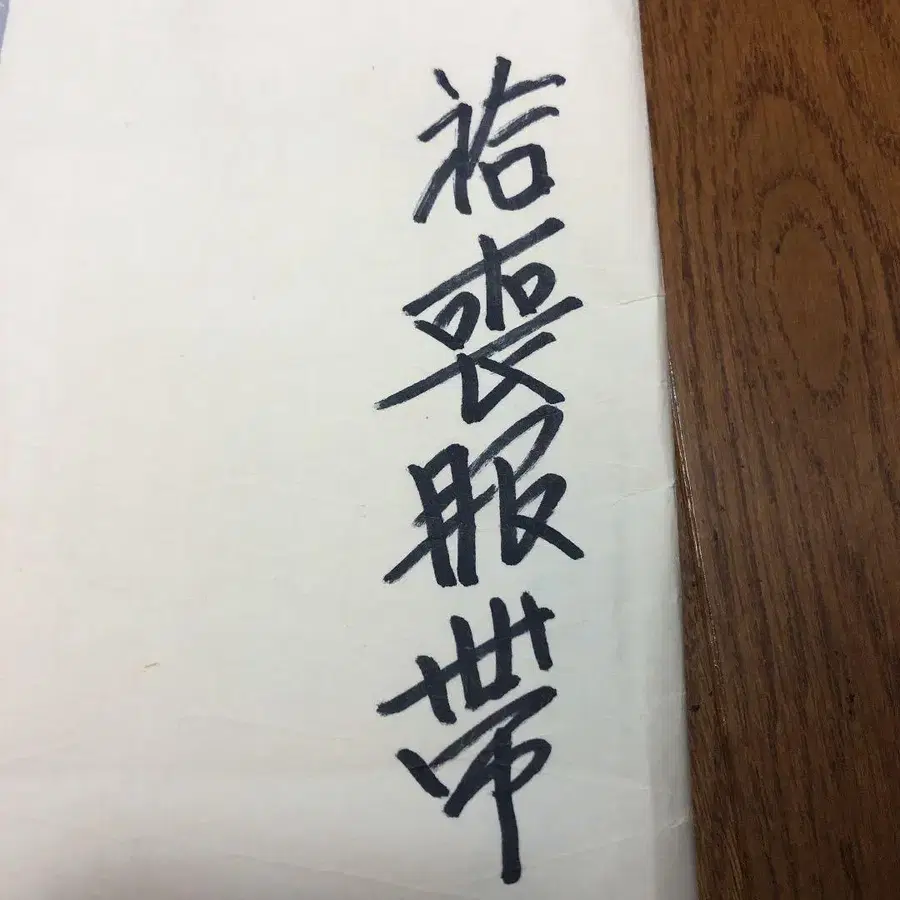 袷喪服帯